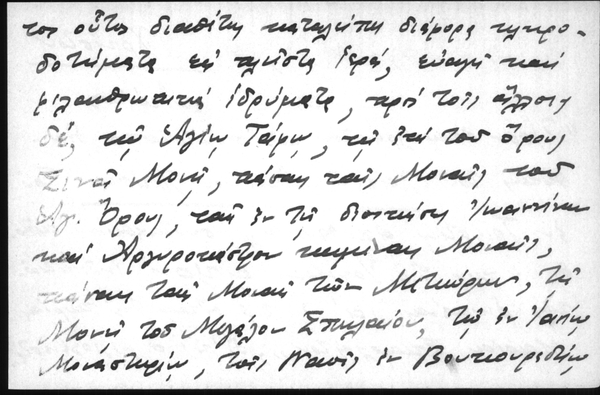 τος οὗτος διαθέτης καταλείπει διάφορα κληρο-
δοτήματα εἰς πλεῖστα ἱερά, εὐαγῆ καὶ
φιλανθρωπικά ἱδρύματα, πρὸς τοῖς ἄλλοις
δέ, τῷ Ἁγίῳ Τάφῳ, τῇ ἐπὶ τοῦ ὄρους
Σινᾶ Μονῇ, πάσαις ταῖς Μοναῖς τοῦ
Ἁγ. Ὄρους, ταῖς ἐν τῇ διοικήσει Ἰωαννίνων
καὶ Ἀργυροκάστρου κειμέναις Μοναῖς,
πάσαις ταῖς Μοναῖς τῶν Μετεώρων, τῇ
Μονῇ τοῦ Μεγάλου Σπηλαίου, τῷ ἐν
Μοναστηρίῳ, τοῖς Ναοῖς ἐν Βουκουρεστίῳ